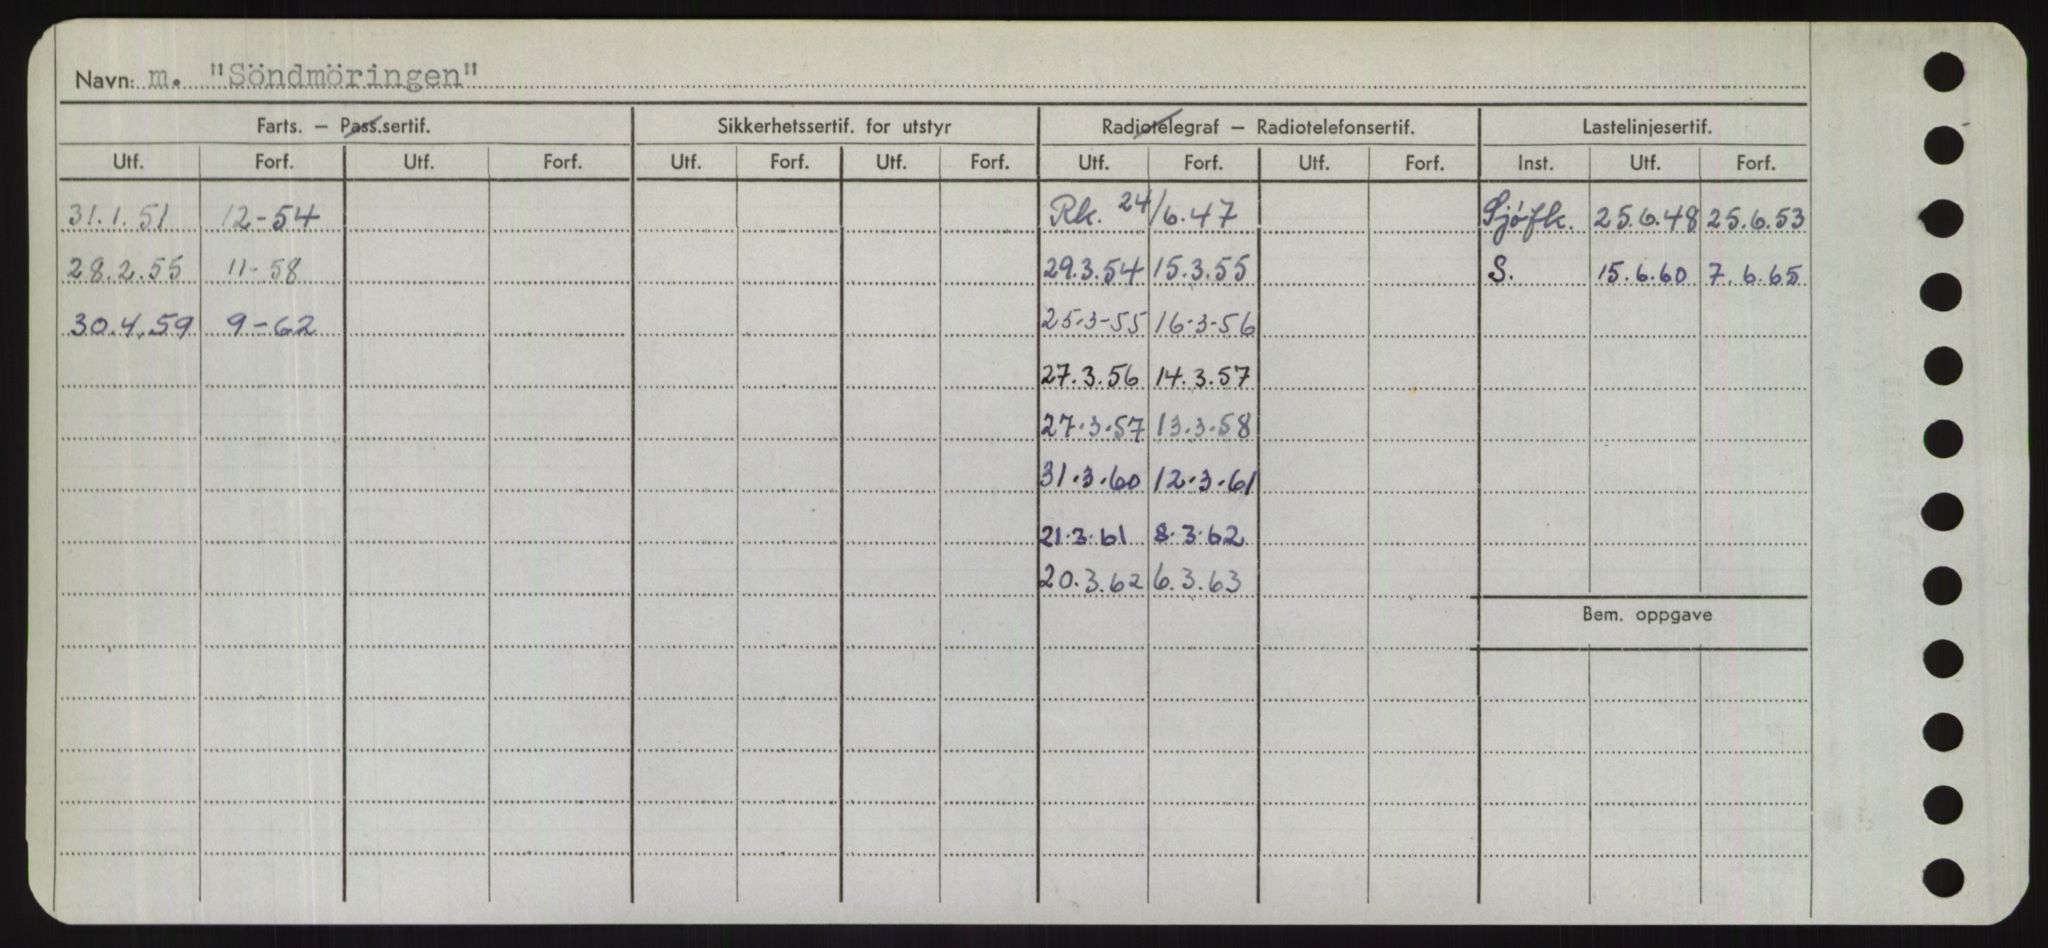 Navn: m. "Söndmöringen"
Farts. – Pass.sertif. Sikkerhetssertif. for utstyr Radiotelegraf – Radiotelefonsertif. Lastelinjesertif.
Utf. Forf. Utf. Forf. Utf. Forf. Utf. Forf. Utf. Forf. Utf. Forf. Inst. Utf. Forf.
31.1.51 12-54 Rk. 24/6.47 Sjøfk. 25.6.48 25.6.53
28.2.55 11-58 29.3.54 15.3.55 S. 15.6.60 7.6.65
30.4.59 9-62 25-3-55 16-3-56
27.3.56 14.3.57
27.3.57 13.3.58
31.3.60 12.3.61
21.3.61 8.3.62
20.3.62 6.3.63
Bem. oppgave